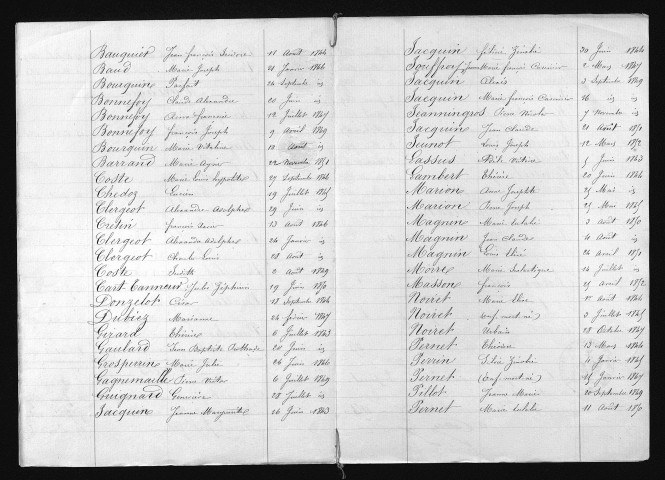 Bauquier Jean François Isidore 11 Août 1844
Baud Marie Joseph 21 Janvier 1846
Bourquin Parfait 24 Septembre id
Bonnefoy Claude Alexandre 20 Juin id
Bonnefoy Anne Françoise 12 Juillet 1847
Bonnefoy François Joseph 9 Avril 1849
Bourquin Marie 10 Août id
Barrand Marie 22 Novembre 1851
Coste Marie Louis hyppolite 27 Septembre 1844
Chedoz Lucien 19 Juillet 1845
Clergeot Alexandre Adolphe 29 Juin id
Cretin François 13 Août 1846
Clergeot Alexandre Adolphe 24 Janvier id
Clergeot Charles Louis 28 Août id
Coste Judith 2 Août 1849
Cart Tanneur Jules Zéphirin 19 Juin 1850
Donzelot César 13 Septembre 1844
Dubiez Marianne 24 Février 1847
Girard Thérèse 6 Juillet 1843
Gaulard Jean Baptiste 20 Juin id
Grosperrin Marie Julie 26 Juin 1844
Gagnemaille Victor 6 Juillet 1849
Guignard Geneviève 28 Juillet id
Jacquin Jeanne Marguerite 26 Juin 1843
Jacquin 30 Juin 1844
Jouffroy Marie François 2 Mars 1847
Jacquin Alexis 3 Septembre 1849
Jacquin Marie François 26 id id
Jeanningros 7 Novembre id
Jacquin Jean Claude 21 Août 1850
Jeunot Louis Joseph 12 Mars 1852
Cassus 5 Juin 1843
Lambert Thérèse 20 Juin 1844
Marion Anne Josephte 25 Mai id
Marion Joseph 25 Mai 1845
Magnin Marie 3 Août 1850
Magnin Jean Claude 4 Août id
Magnin Louis 26 Avril 1850
Moire Marie 24 Juillet id
Masson François 25 Avril 1852
Noiret Marie 1er Août 1844
Noiret (enf. mort né) 3 Juillet 1845
Noiret Urbain 28 Octobre 1847
Pernet Thérèse 13 Mars 1844
Perrin 4 Janvier 1845
Pernet (Enf. mort né) 15 Janvier 1847
Pillot Jeanne Marie 20 Septembre 1849
Pernet Marie 11 Août 1850